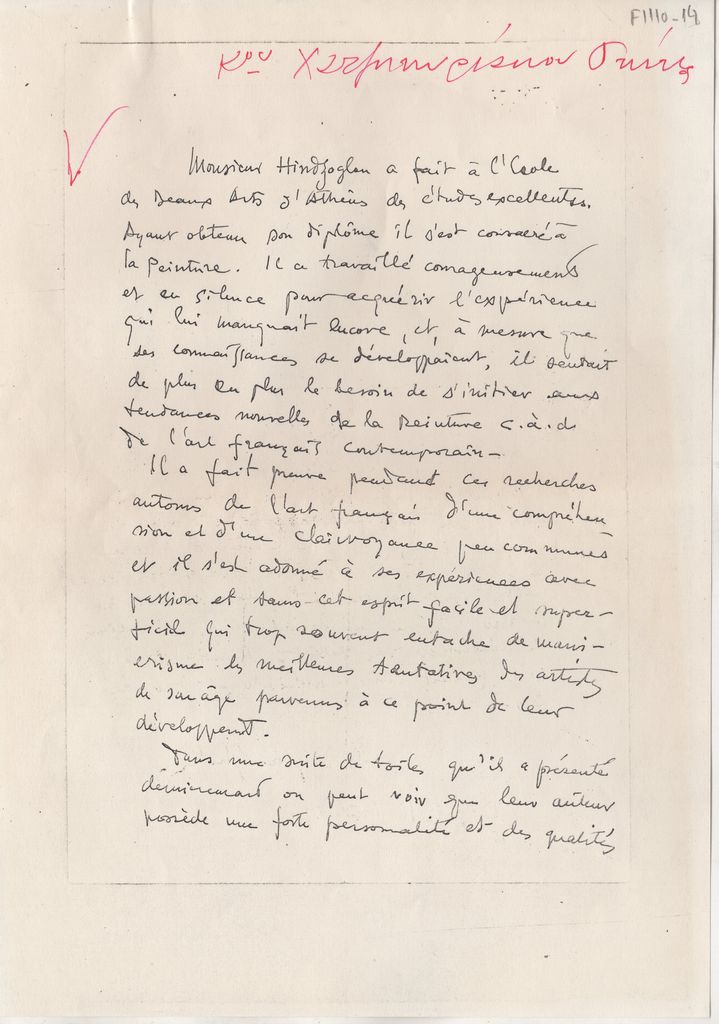 F1110-14
Κου
Monsieur Hindjoglou a fait à l'École
des Beaux Arts d'Athènes des études excellentes.
Ayant obtenu son diplôme il s'est consacré à
la peinture. Il a travaillé courageusement
et en silence pour acquérir l'expérience
qui lui manquait encore, et, à mesure que
ses connaissances se développaient, il sentait
de plus en plus le besoin de s'initier aux
tendances nouvelles de la peinture c.à.d
de l'art français contemporain –
Il a fait preuve pendant ces recherches
autours de l'art français d'une compréhen
sion et d'une clairvoyance peu communes
et il s'est adonné à ses expériences avec
passion et sans cet esprit facile et super–
ficiel qui trop souvent entache de mani–
érisme les meilleures tentatives des artistes
de son âge parvenus à ce point de leur
développemt.
Dans une suite de toiles qu'il a présenté
dernièrement on peut voir que leur auteur
possède une forte personnalité et des qualités